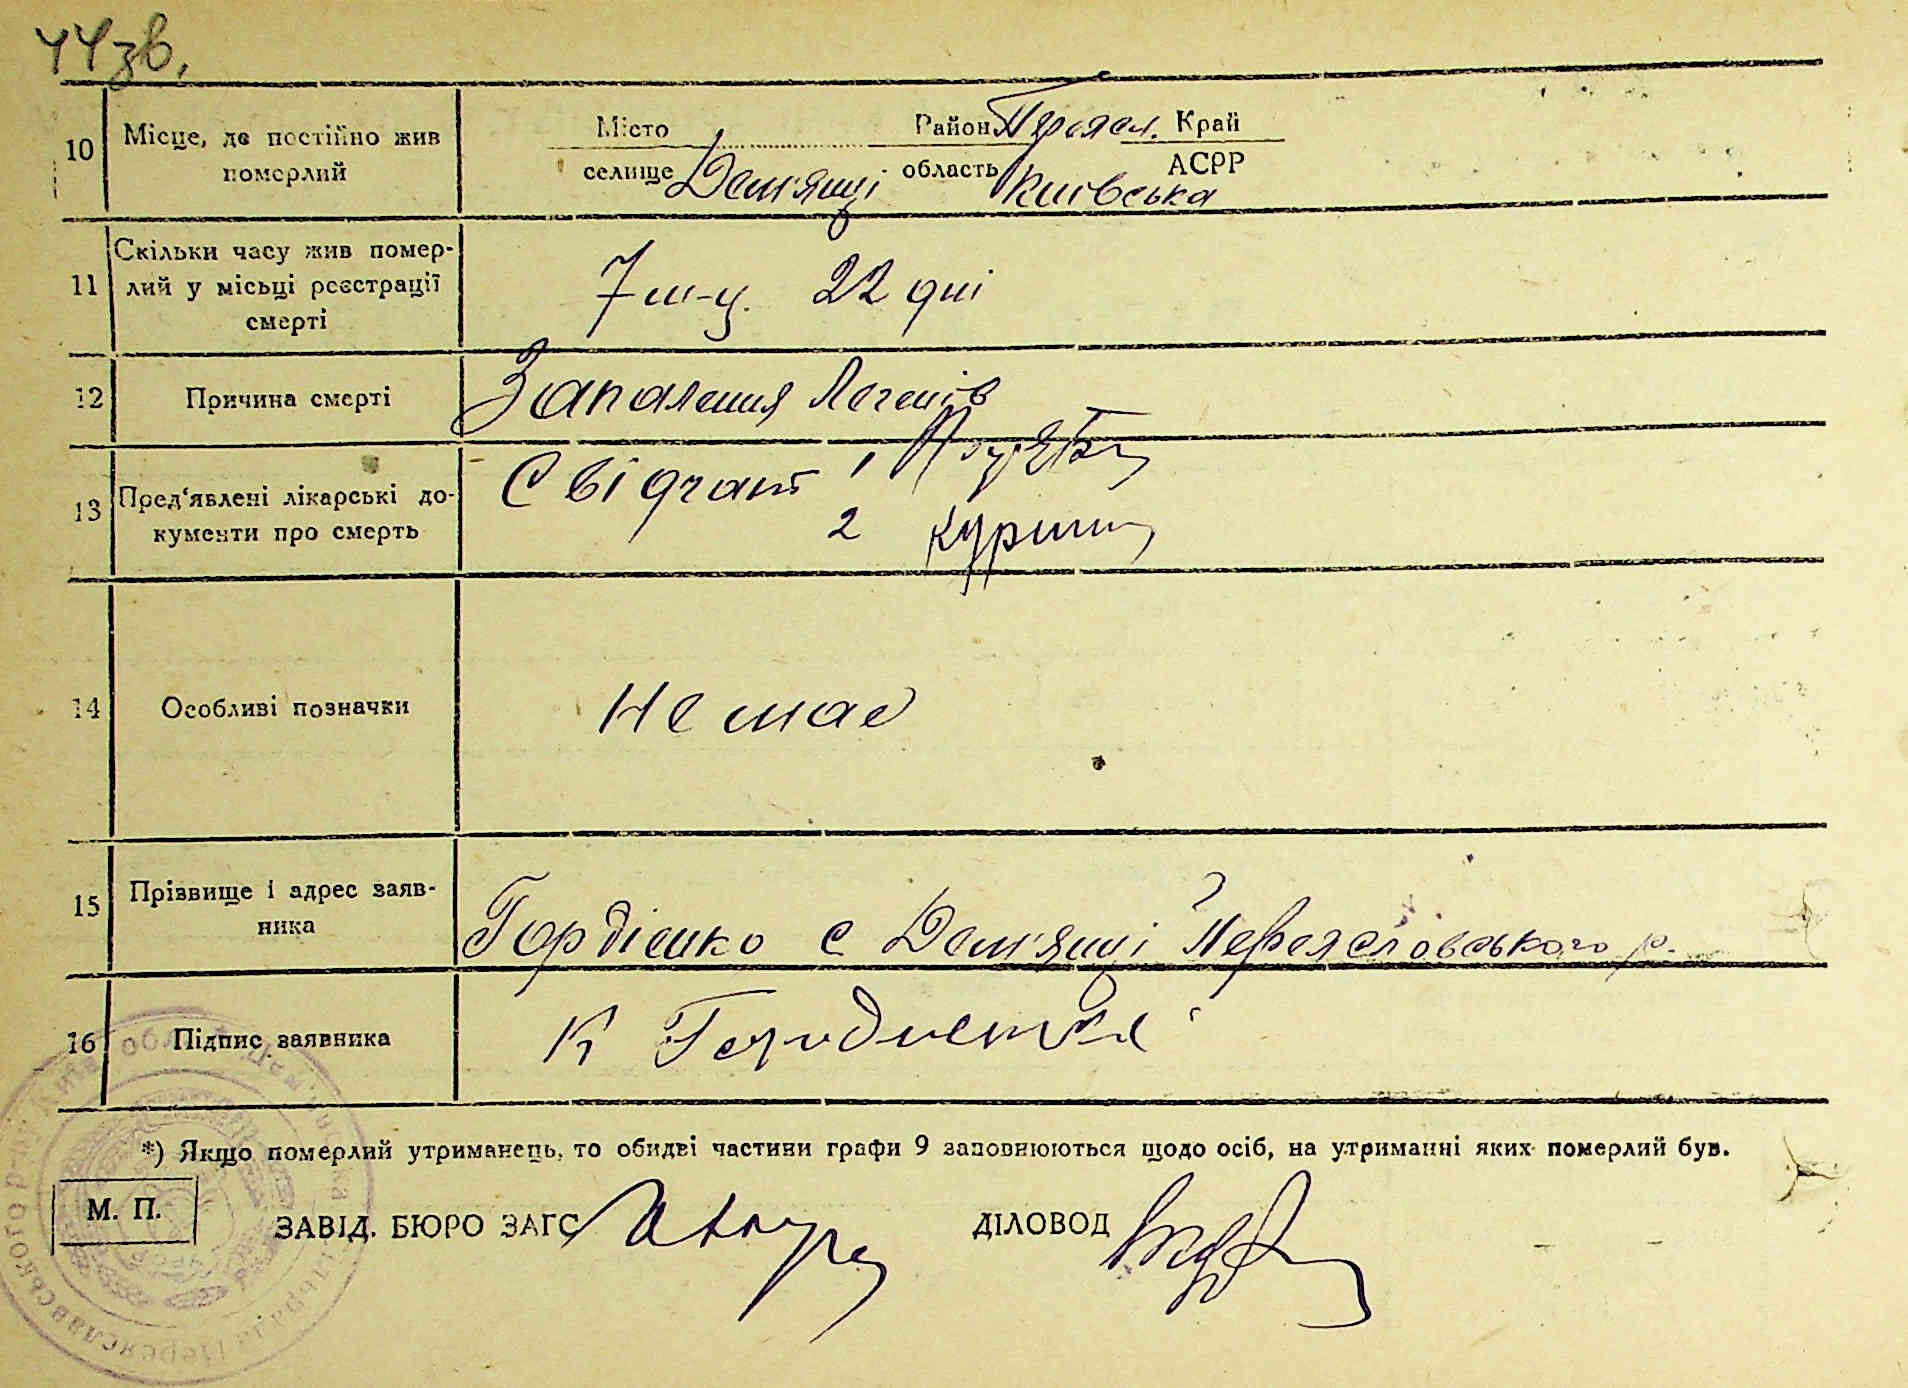 44зв.
10 Місце, де постійно жив померлий
Місто Район Переясл. Край
селище Дем'янці область Київська АСРР
11 Скільки часу жив помер-
лий у місьці реєстрації
смерті
7 м-ц. 22 дні
12 Причина смерті Запалення Легенів
13 Пред'явлені лікарські до-
кументи про смерть
Свідчать 1
2
14 Особливі позначки Не має
15 Прізвище і адрес заяв-
ника
Гордієнко с Дем'янці Переясловського р.
16 Підпис заявника К
*) Якщо померлий утриманець, то обидві частини графи 9 заповнюються щодо осіб, на утриманні яких померлий був.
М. П.
ЗАВІД. БЮРО ЗАГС ДІЛОВОД